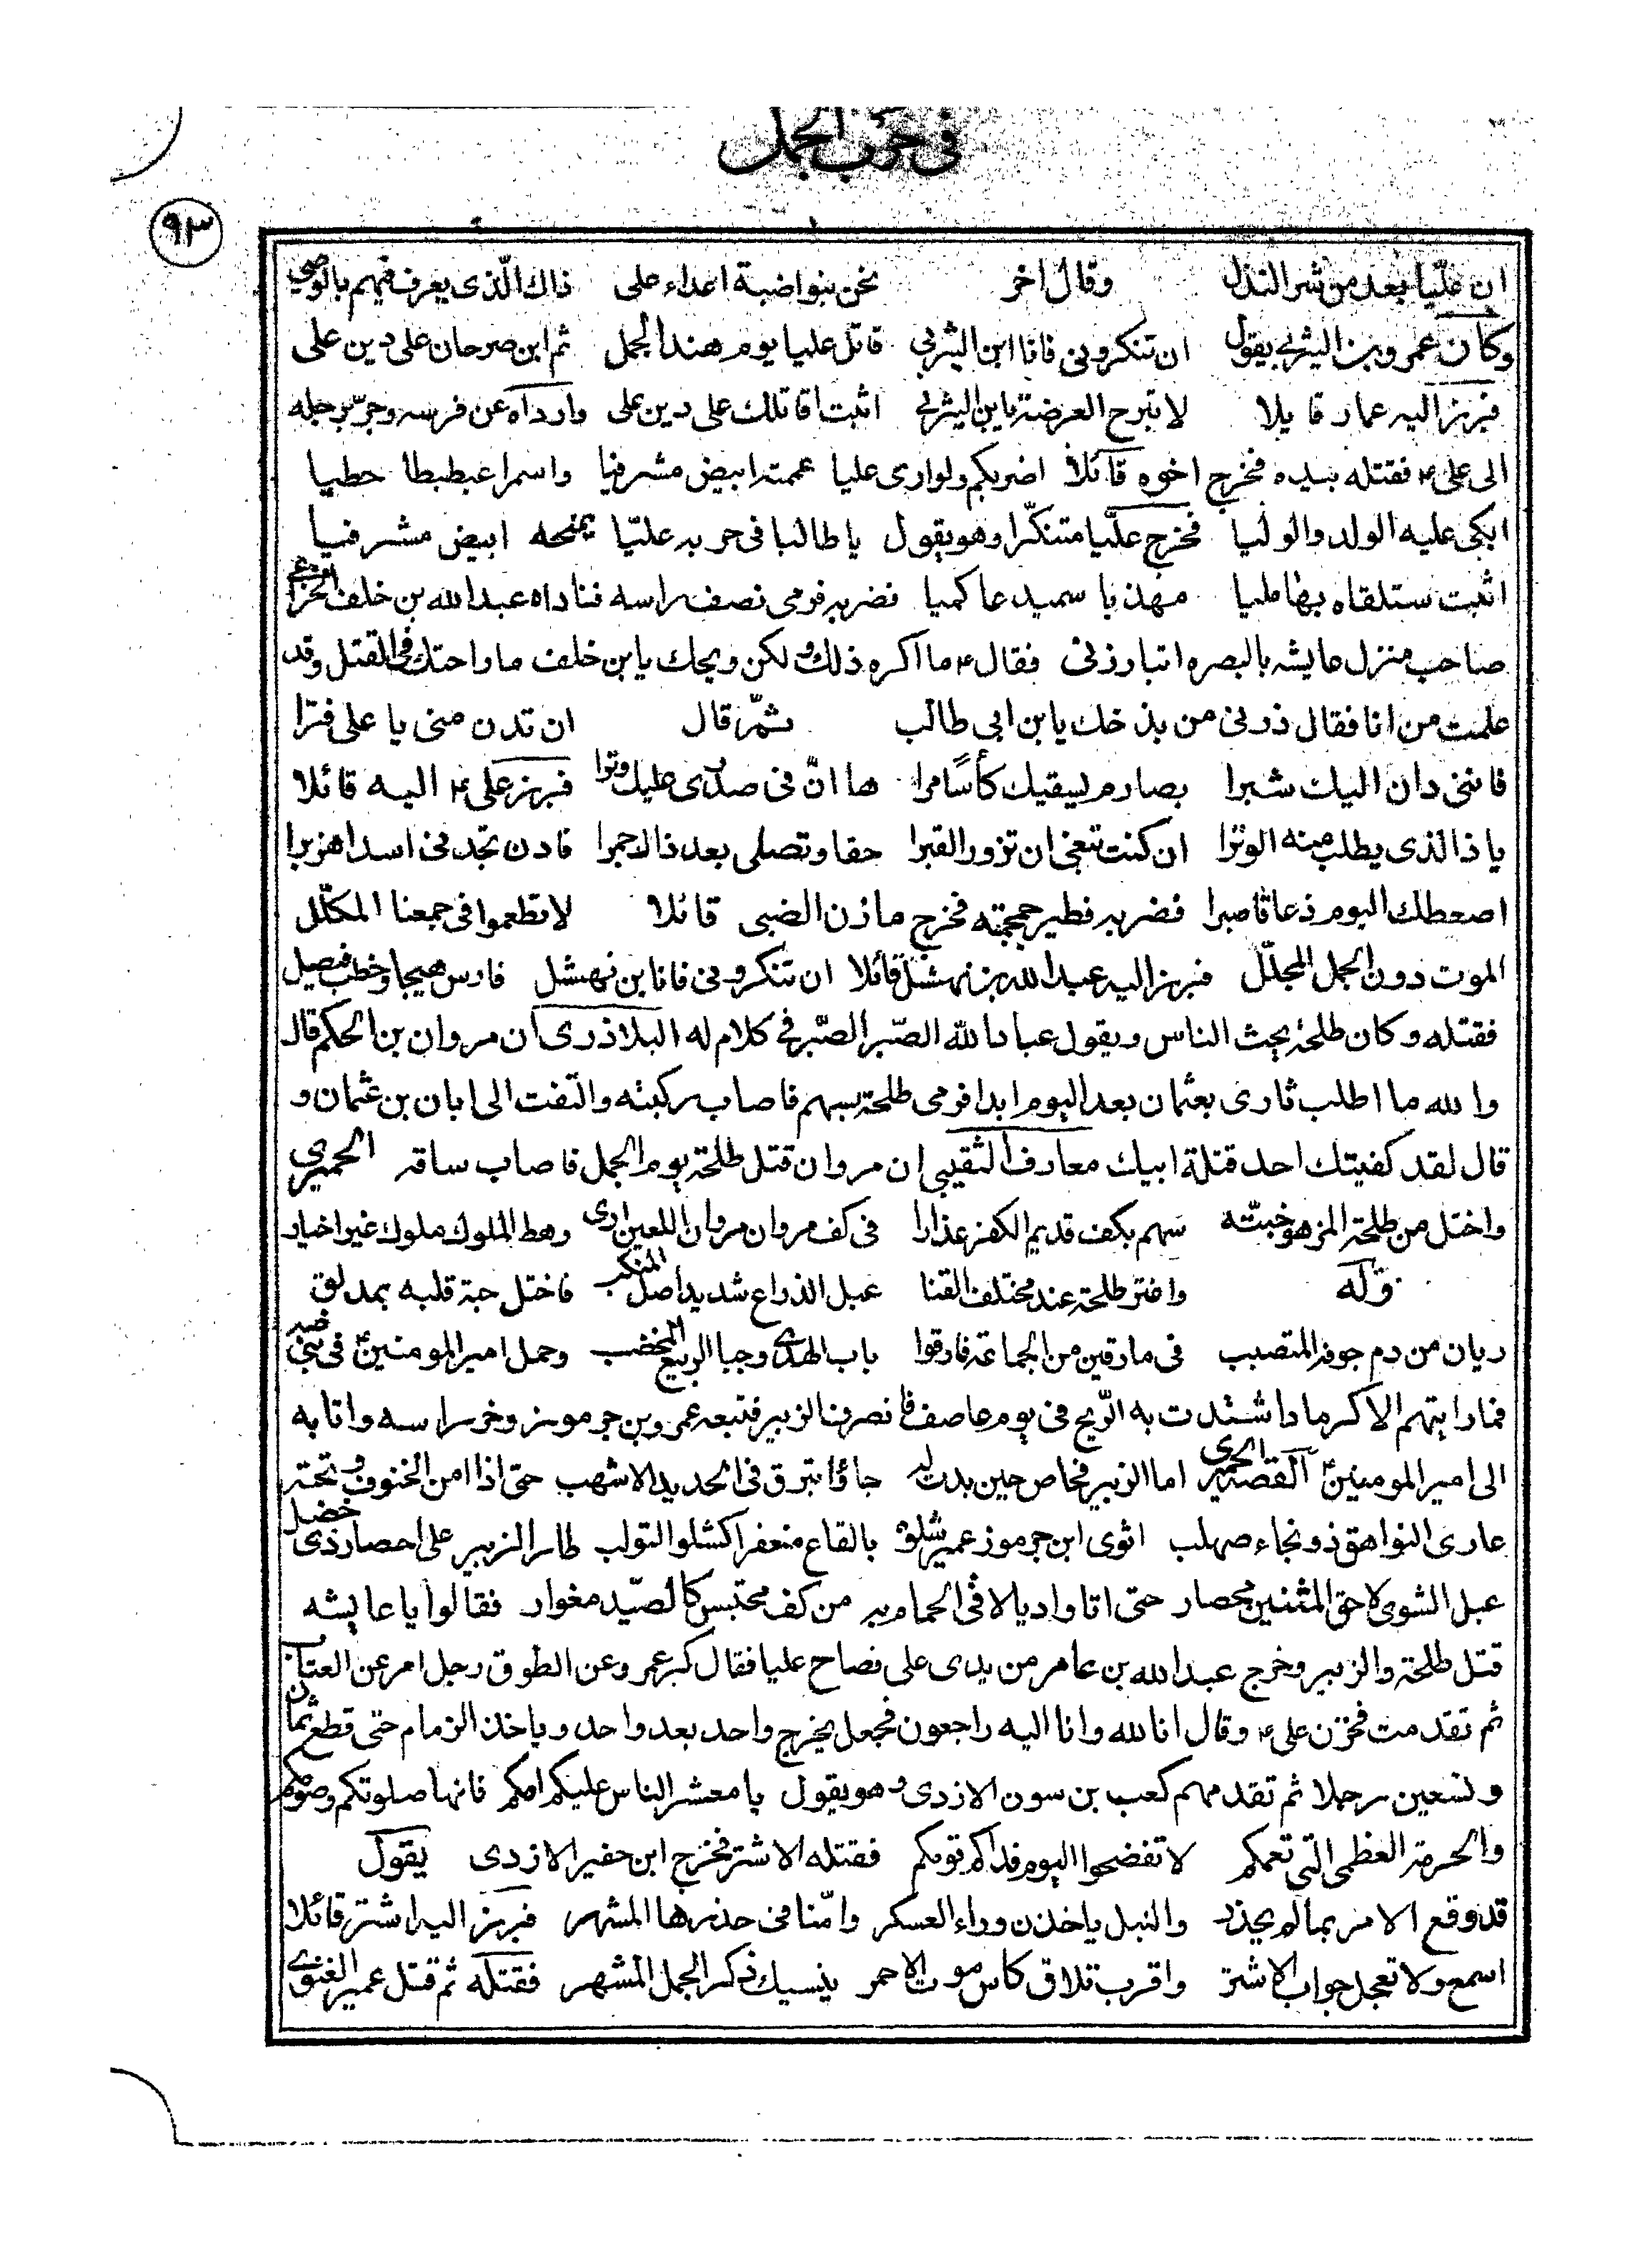 في حرب الجمل
٩٣
ان عليّا بعد من شر النذل وقال اخر نحن بنوا ضبة اعداء على ذاك الّذى يعرف فيهم بالوصي
وكان عمرو بن اليثربى يقول ان تنكرونى فانا ابن اليثربى قاتل عليا يوم هند الجمل ثم ابن صرحان على دين على
فبرز اليه عمار قايلا لا تبرح العرضة يابن اليثربى اثبت اقاتلك على دين على وارداه عن فرسه وجرّ برجله
الى على ٤ فقتله بيده فخرج اخوه قائلا اضربكم ولو ارى عليا عممته ابيض مشرفيا واسمرا عبطبطا خطيا
ابكى عليه الولد والوليا فخرج عليّا متنكّرا وهو يقول يا طالبا فى حربه عليّا يمنحه ابيض مشرفيا
اثبت ستلقاه بها مليا مهذبا سميدعا كميا فضربه فرمى نصف راسه فناداه عبد الله بن خلف الخزاعي
صاحب منزل عايشه بالبصره اتبارزنى فقال ٤ ما اكره ذلك ولكن ويحك يابن خلف ما راحتك فى القتل وقد
علمت من انا فقال ذرنى من بذخك يابن ابى طالب ثمّ قال ان تدن منى يا على فترا
فاننى دان اليك شبرا بصارم يسقيك كأسًا مرا ها انّ فى صدرى عليك وترا فبرز على ٤ اليه قائلا
يا ذا الذى يطلب منه الوترا ان كنت تبغى ان تزور القبرا حقا وتصلى بعد ذاك جمرا فادن تجدنى اسدا هزبرا
اصعطك اليوم ذعاقا صبرا فضربه فطير جمجمته فخرج مازن الضبى قائلا لا تطعموا فى جمعنا المكلّل
الموت دون الجمل المجلّل فبرز اليه عبد الله بن نهشل قائلا ان تنكرونى فانا بن نهشل فارس هيجا وخطب فيصل
فقتله وكان طلحة يحث الناس ويقول عباد الله الصّبر الصّبر فى كلام له البلاذرى ان مروان بن الحكم قال
والله ما اطلب ثارى بعثمان بعد اليوم ابدا فرمى طلحة بسهم فاصاب ركبته والتفت الى ابان بن عثمان و
قال لقد كفيتك احد قتلة ابيك معارف الثقيبى ان مروان قتل طلحة يوم الجمل فاصاب ساقه الحميرى
واختل من طلحة المزهو خبتّه سهم بكف قديم الكفر غدارا فى كف مروان مروان اللعين ارى رهط الملوك ملوك غير اخيار
وله واغتر طلحة عند مختلف القنا عبل الذراع شديد اصل المنكب فاختل حبة قلبه بمدلق
ريان من دم جوفه المتصبب فى مارقين من الجماعة فارقوا باب الهدى وحيا الربيع المخصب وحمل امير المومنين فى بنى ضبه
فما رايتهم الا كرماد اشتدت به الرّيح فى يوم عاصف فانصرف الزبير فتبعه عمرو بن جرموز وخز راسه واتا به
الى امير المومنين القصة الحميرى اما الزبير فحاص حين بدت له جاؤا تبرق فى الحديد الاشهب حتى اذا امن الحتوف وتحته
عارى النواهق ذو نجاء صهلب اثوى ابن جرموز عمير شلوه بالقاع منعفرا كشلو التولب طار الزبير على احصار ذى خضل
عبل الشوى لاحق المتنين محصار حتى اتا واديا لاقى الحمام به من كف محتبس كالصّيد مغوار فقالوا يا عايشه
قتل طلحة والزبير وخرج عبد الله بن عامر من يدى على فصاح عليا فقال كبر عمرو عن الطوق رجل امر عن العتاب
ثم تقدمت فحزن على ٤ وقال انا لله وانا اليه راجعون فجعل يخرج واحد بعد واحد وياخذ الزمام حتى قطع ثمان
وتسعين رجلا ثم تقدمهم كعب بن سون الازدى وهو يقول يا معشر الناس عليكم امكم فانها صلوتكم وصومكم
والحرمة العظمى التى تعمكم لا تفضحوا اليوم فداكم قومكم فقتله الاشتر فخرج ابن حفير الازدى يقول
قد وقع الامر بما لم يحذر والنبل ياخذن وراء العسكر وامّنا فى حذرها المشهر فبرز اليه اشتر قائلا
اسمع ولا تعجل جواب الاشتر واقرب تلاق كاس موت الاحمر ينسيك ذكر الجمل المشهر فقتله ثم قتل عمير الغنوى